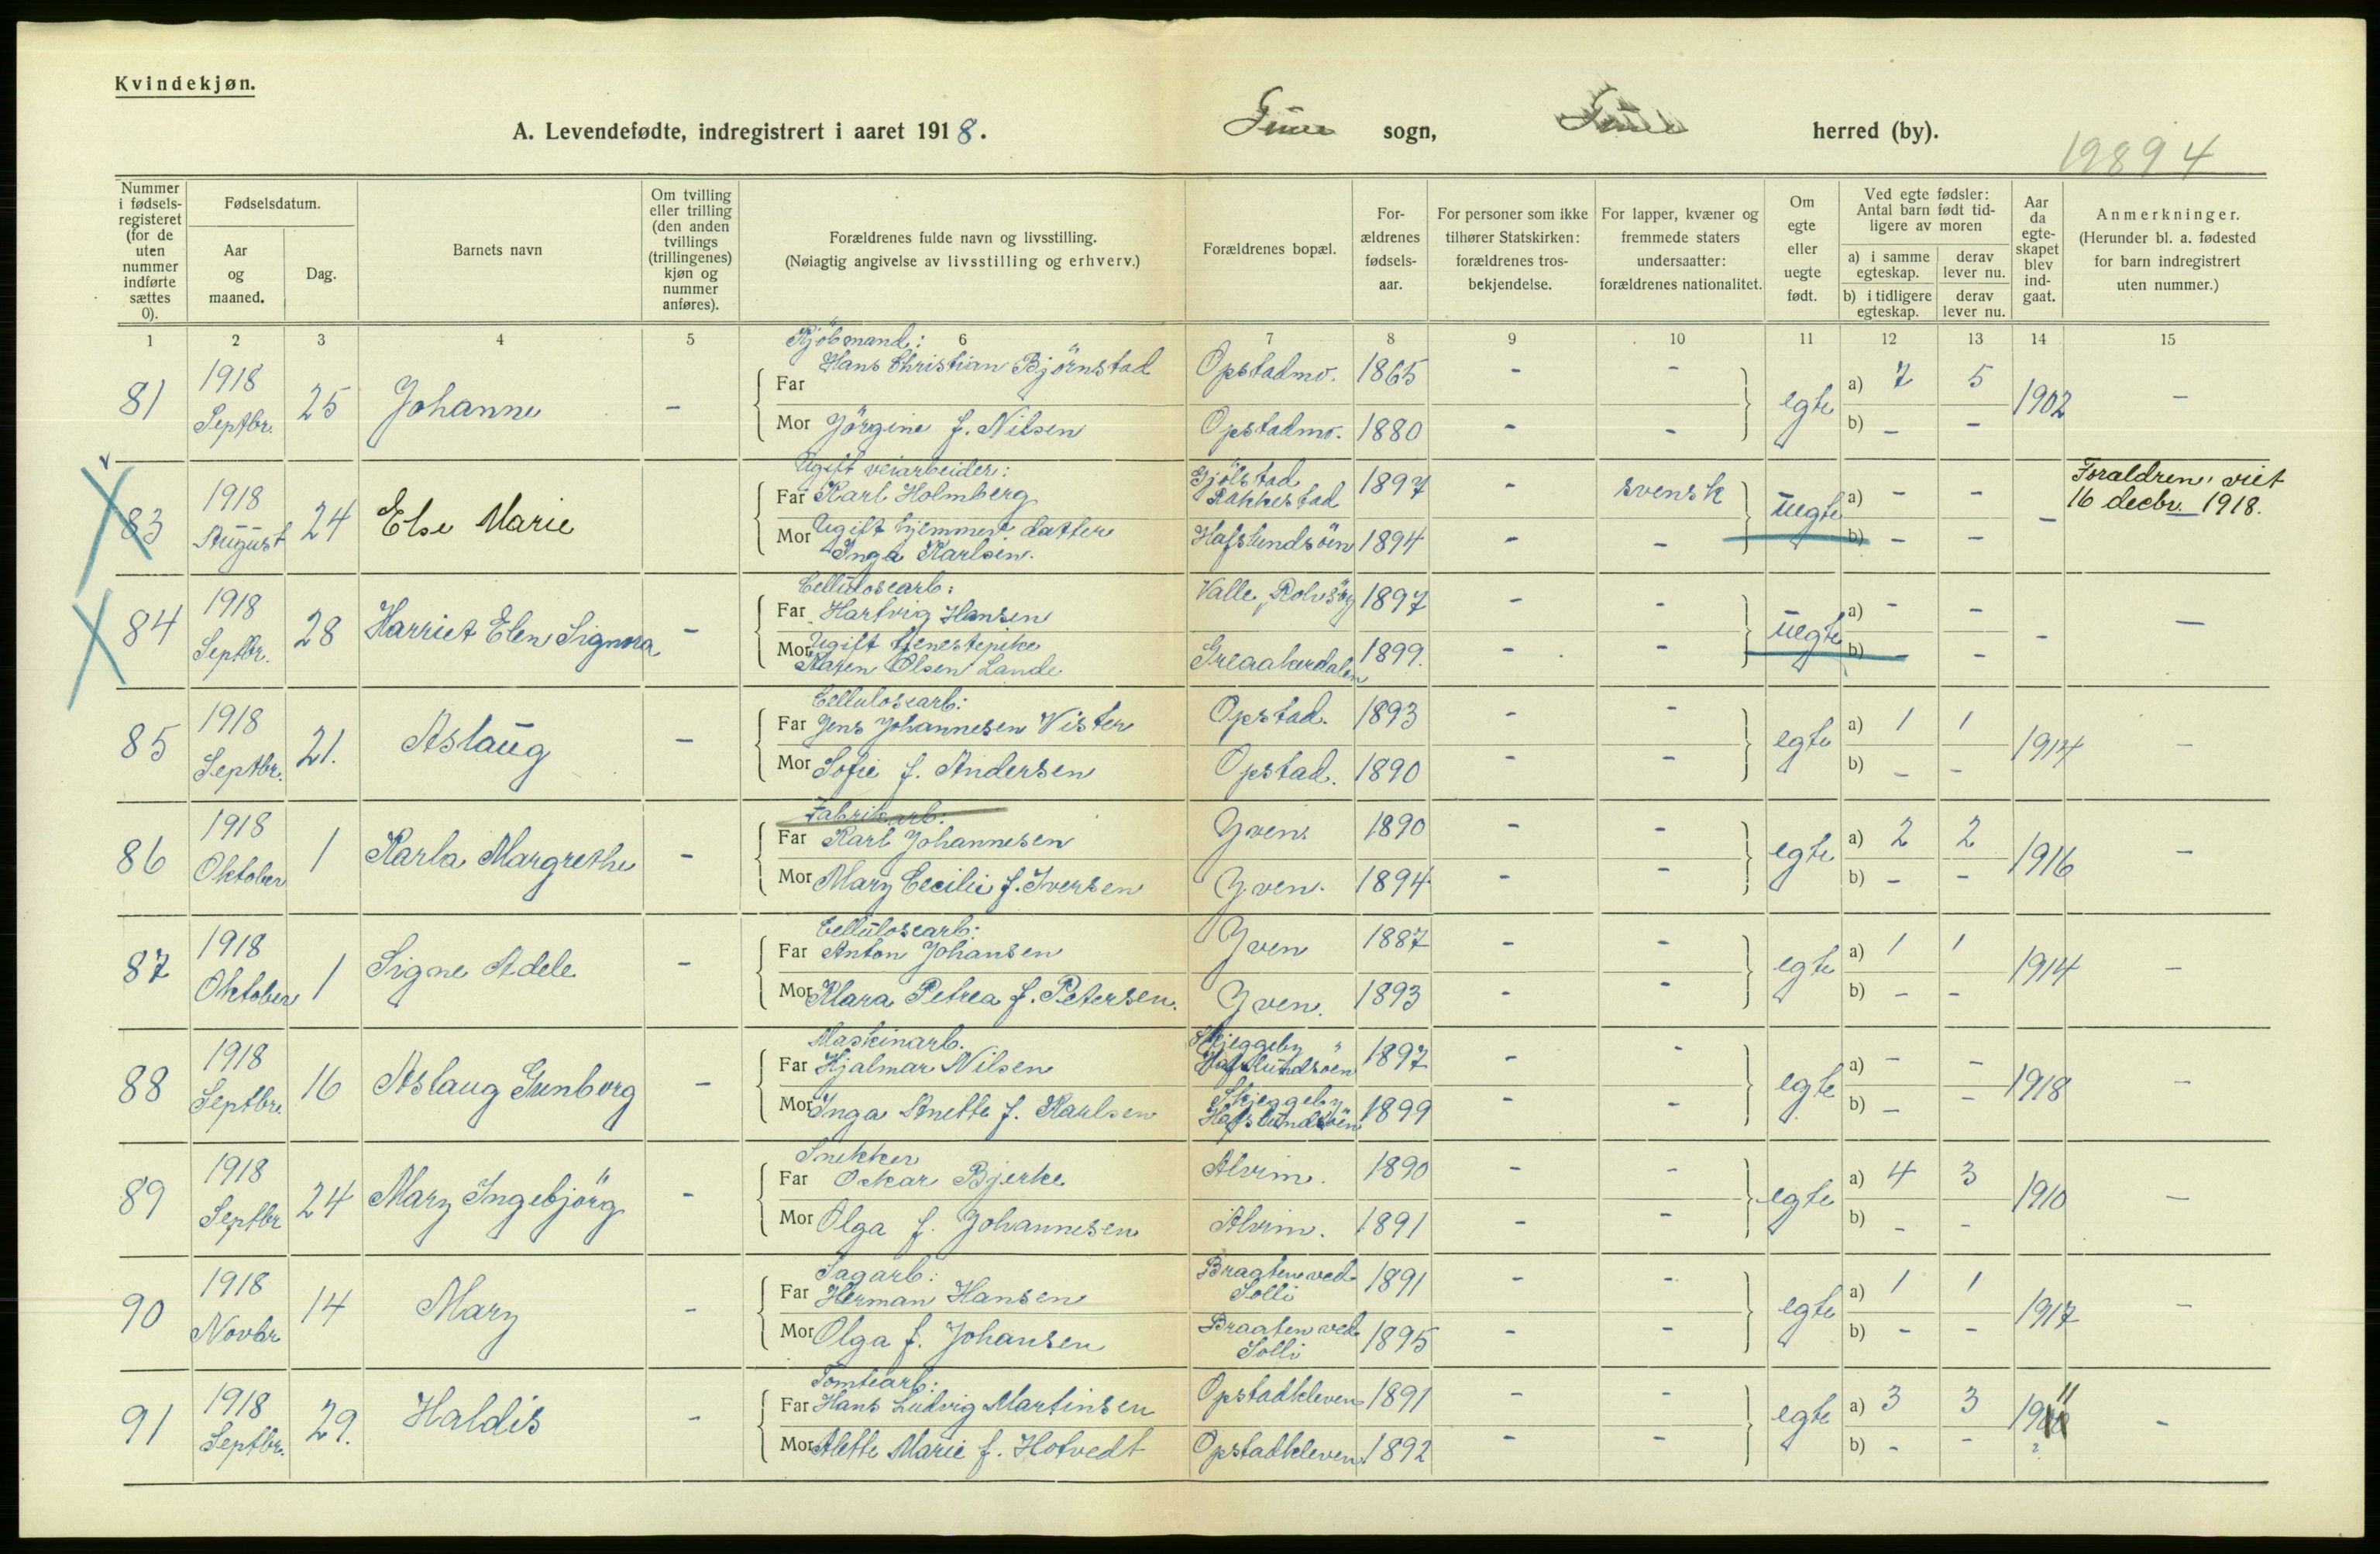 Kvindekjøn.
A. Levendefødte, indregistrert i aaret 1918.
Tune sogn, herred (by).
19894
Nummer i fødselsregisteret (for de uten nummer indførte sættes 0).
Fødselsdatum.
Aar og maaned.
Dag.
Barnets navn
Om tvilling eller trilling (den anden tvillings (trillingenes) kjøn og nummer anføres).
Forældrenes fulde navn og livsstilling.
(Nøiagtig angivelse av livsstilling og erhverv.)
Forældrenes bopæl.
For-ældrenes fødsels-aar.
For personer som ikke tilhører Statskirken: forældrenes tros-bekjendelse.
For lapper, kvæner og fremmede staters undersaatter: forældrenes nationalitet.
Om egte eller uegte født.
Ved egte fødsler: Antal barn født tidligere av moren
a) i samme egteskap.
derav lever nu.
b) i tidligere egteskap.
derav lever nu.
Aar da egte-skapet blev ind-gaat.
Anmerkninger.
(Herunder bl. a. fødested for barn indregistrert uten nummer.)
1 2 3 4 5 6 7 8 9 10 11 12 13 14 15
Kjöbmand:
81 1918 Septbr. 25 Johanne - Far Hans Christian Björnstad Opstadmo. 1865 - - egte a) 7 5 1902 -
Mor Jörgine f. Nilsen Opstadmo. 1880 - - b) - -
Ugift veiarbeider:
83 1918 August 24 Else Marie Far Karl Holmberg Gjölstad Rakkestad 1897 - svensk uegte a) - - - Foraldren viet 16 decbr. 1918.
Mor Ugift hjemmev. datter Inga Karlsen. Hafslundsöen 1894 - - b) - -
Cellulosearb:
84 1918 Septbr. 28 Harriet Elen Signora - Far Hartvig Hansen Valle, Rolvsöy 1897 - - uegte a) - - - -
Mor Ugift tjenestepike Karen Olsen Lande Greaakerdalen 1899. - - b) - -
Cellulosearb:
85 1918 Septbr. 21. Aslaug - Far Jens Johannesen Vister Opstad. 1893 - - egte a) 1 1 1914 -
Mor Sofie f. Andersen Opstad. 1890 - - b) - -
Fabrikarb:
86 1918 Oktober 1 Karla Margrethe - Far Karl Johannesen Yven. 1890 - - egte a) 2 2 1916 -
Mor Mary Cecilie f. Iversen Yven. 1894 - - b) - -
Cellulosearb:
87 1918 Oktober 1 Signe Adele - Far Anton Johansen Yven 1887 - - egte a) 1 1 1914 -
Mor Klara Petrea f. Petersen. Yven. 1893 - - b) - -
Maskinarb.
88 1918 Septbr. 16 Aslaug Gunborg - Far Hjalmar Nilsen Skjeggeby Hafslundsöen 1897 - - egte a) - - 1918 -
Mor Inga Anette f. Karlsen Skjeggeby Hafslundsöen 1899 - - b) - -
Snekker
89 1918 Septbr 24 Mary Ingebjörg - Far Oskar Bjerke Alvim. 1890 - - egte a) 4 3 1910 -
Mor Olga f. Johannesen Alvim. 1891 - - b) - -
Sagarb:
90 1918 Novbr 14 Mary - Far Herman Hansen Braaten ved Solli 1891 - - egte a) 1 1 1917 -
Mor Olga f. Johansen Braaten ved Solli 1895 - - b) - -
Tomtearb:
91 1918 Septbr. 29. Haldis - Far Hans Ludvig Martinsen Opstadkleven 1891 - - egte a) 3 3 1911 -
Mor Alette Marie f. Hotvedt Opstadkleven 1892 - - b) - - ?